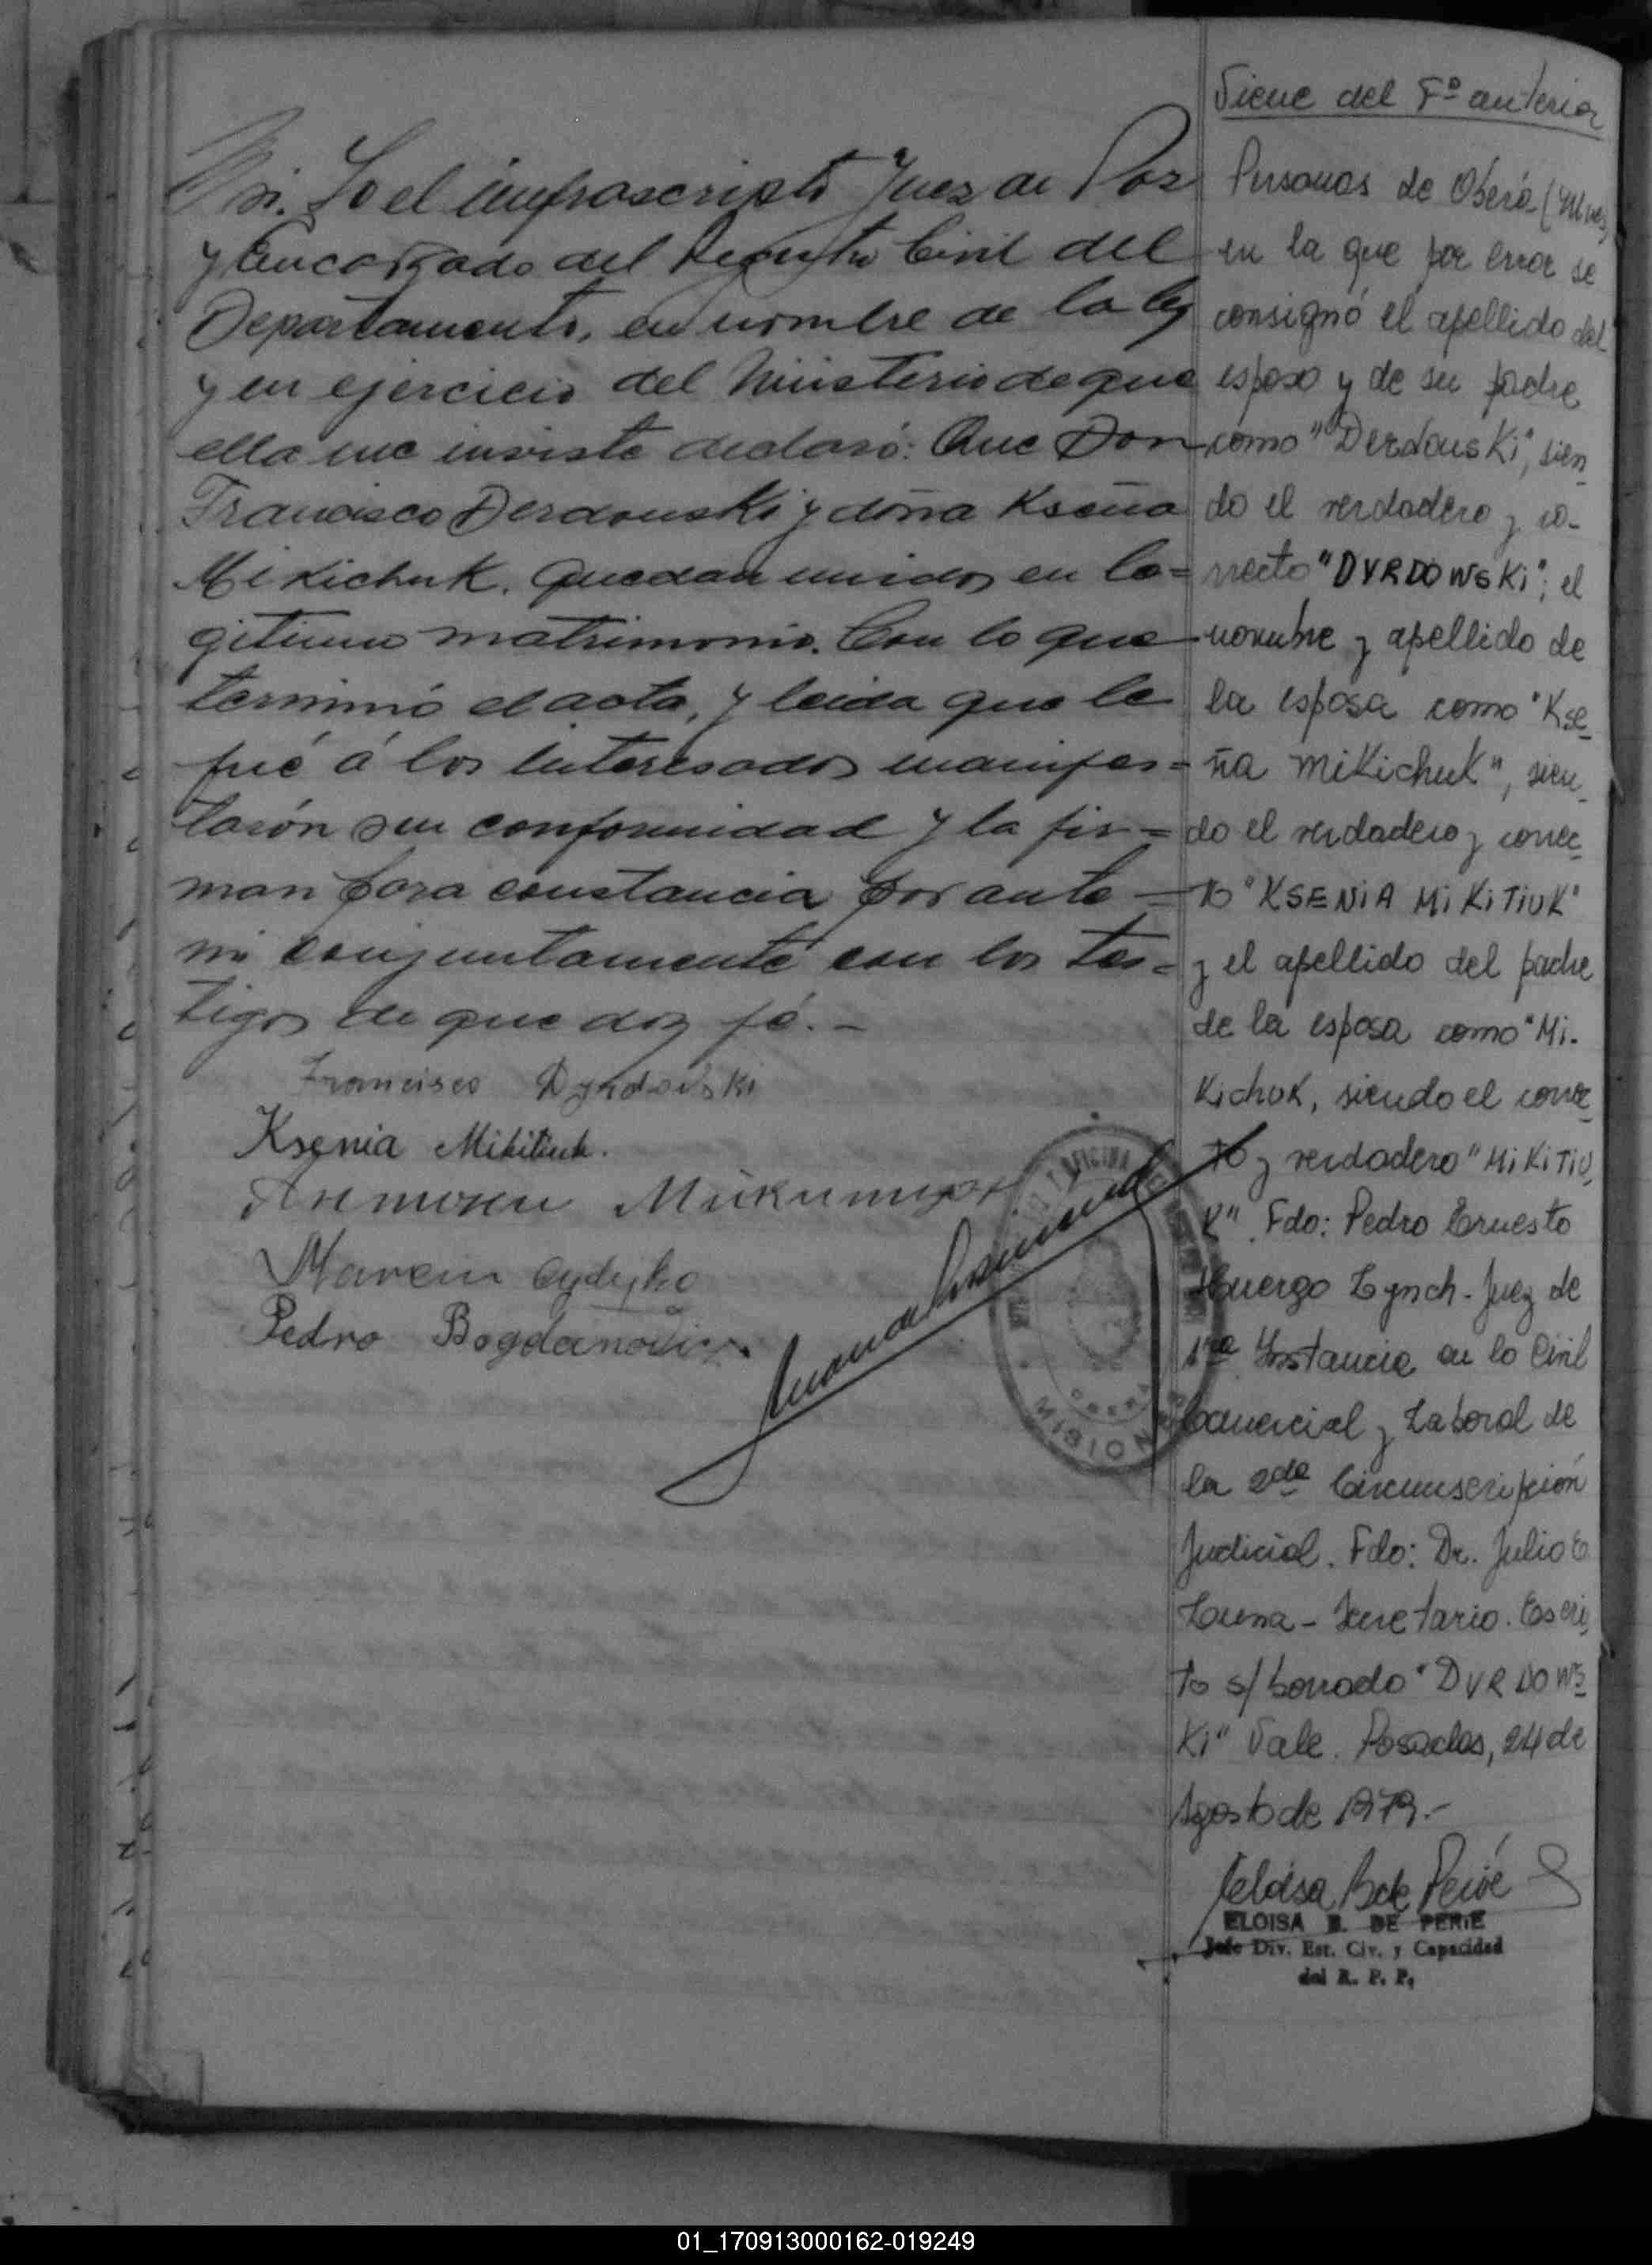 si. Yo el infrascripto Juez de Paz
y Encargado del Registro Civil del
Departamento, en nombre de la ley
y en ejercicio del Ministerio de que
ella me inviste declaró: Que Don
Francisco Derdouski y doña Kseña
Mikichuk. quedan unidos en le=
gitimo matrimonio. Con lo que
terminó el acta, y leida que le
fué á los interesados manifes=
tarón su conformidad y la fir=
man para constancia por ante
mi conjuntamente con los tes=
tigos de que doy fé.-
Francisco Dyrdowski
Ksenia Mikitiuk.
Marcin
Pedro Bogdanowicz
OFICINA
OBERA
MISIONES
Viene del Fº anterior
Personas de Oberá-(Mnes)
en la que por error se
consignó el apellido del
esposo y de su padre
como "Derdouski", sien
do el verdadero y co-
rrecto "DYRDOWSKi"; el
nombre y apellido de
la esposa como "Kse
ña MiKichuk", sien
do el verdadero y correc
to "KSENiA MiKiTiUK"
y el apellido del padre
de la esposa como "Mi-
Kichuk, siendo el correc
to y verdadero "MiKiTiU
K". Fdo: Pedro Ernesto
Huergo Lynch. Juez de
1ra Instancia en lo Civil
Comercial y Laboral de
la 2da Circunscripción
Judicial. Fdo: Dr. Julio C
Luna - Secretario. Escri
to s/borrado "DYRDOWS
Ki" Vale. Posadas, 24 de
Agosto de 1979.-
Eloisa B de Perié
ELOISA B. DE PERIE
Jefe Div. Est. Civ. y Capacidad
del R. P. P.
01_170913000162-019249